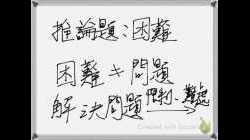 推論題:困難
困難≠問題
解決問題
Created with Doceri